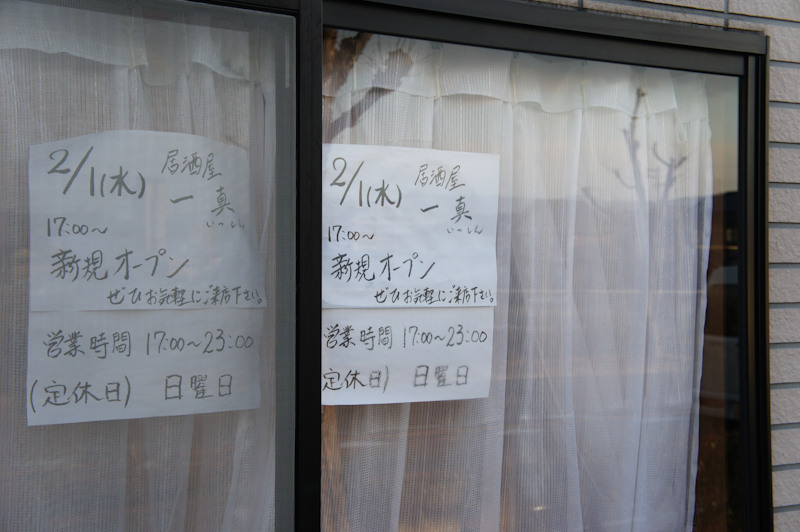 2/1(水) 居酒屋
一真
いっしん
17:00~
新規オープン
ぜひお気軽にご来店下さい。
営業時間 17:00~23:00
(定休日) 日曜日
2/1(水) 居酒屋
一真
いっしん
17:00~
新規オープン
ぜひお気軽にご来店下さい。
営業時間 17:00~23:00
定休日) 日曜日